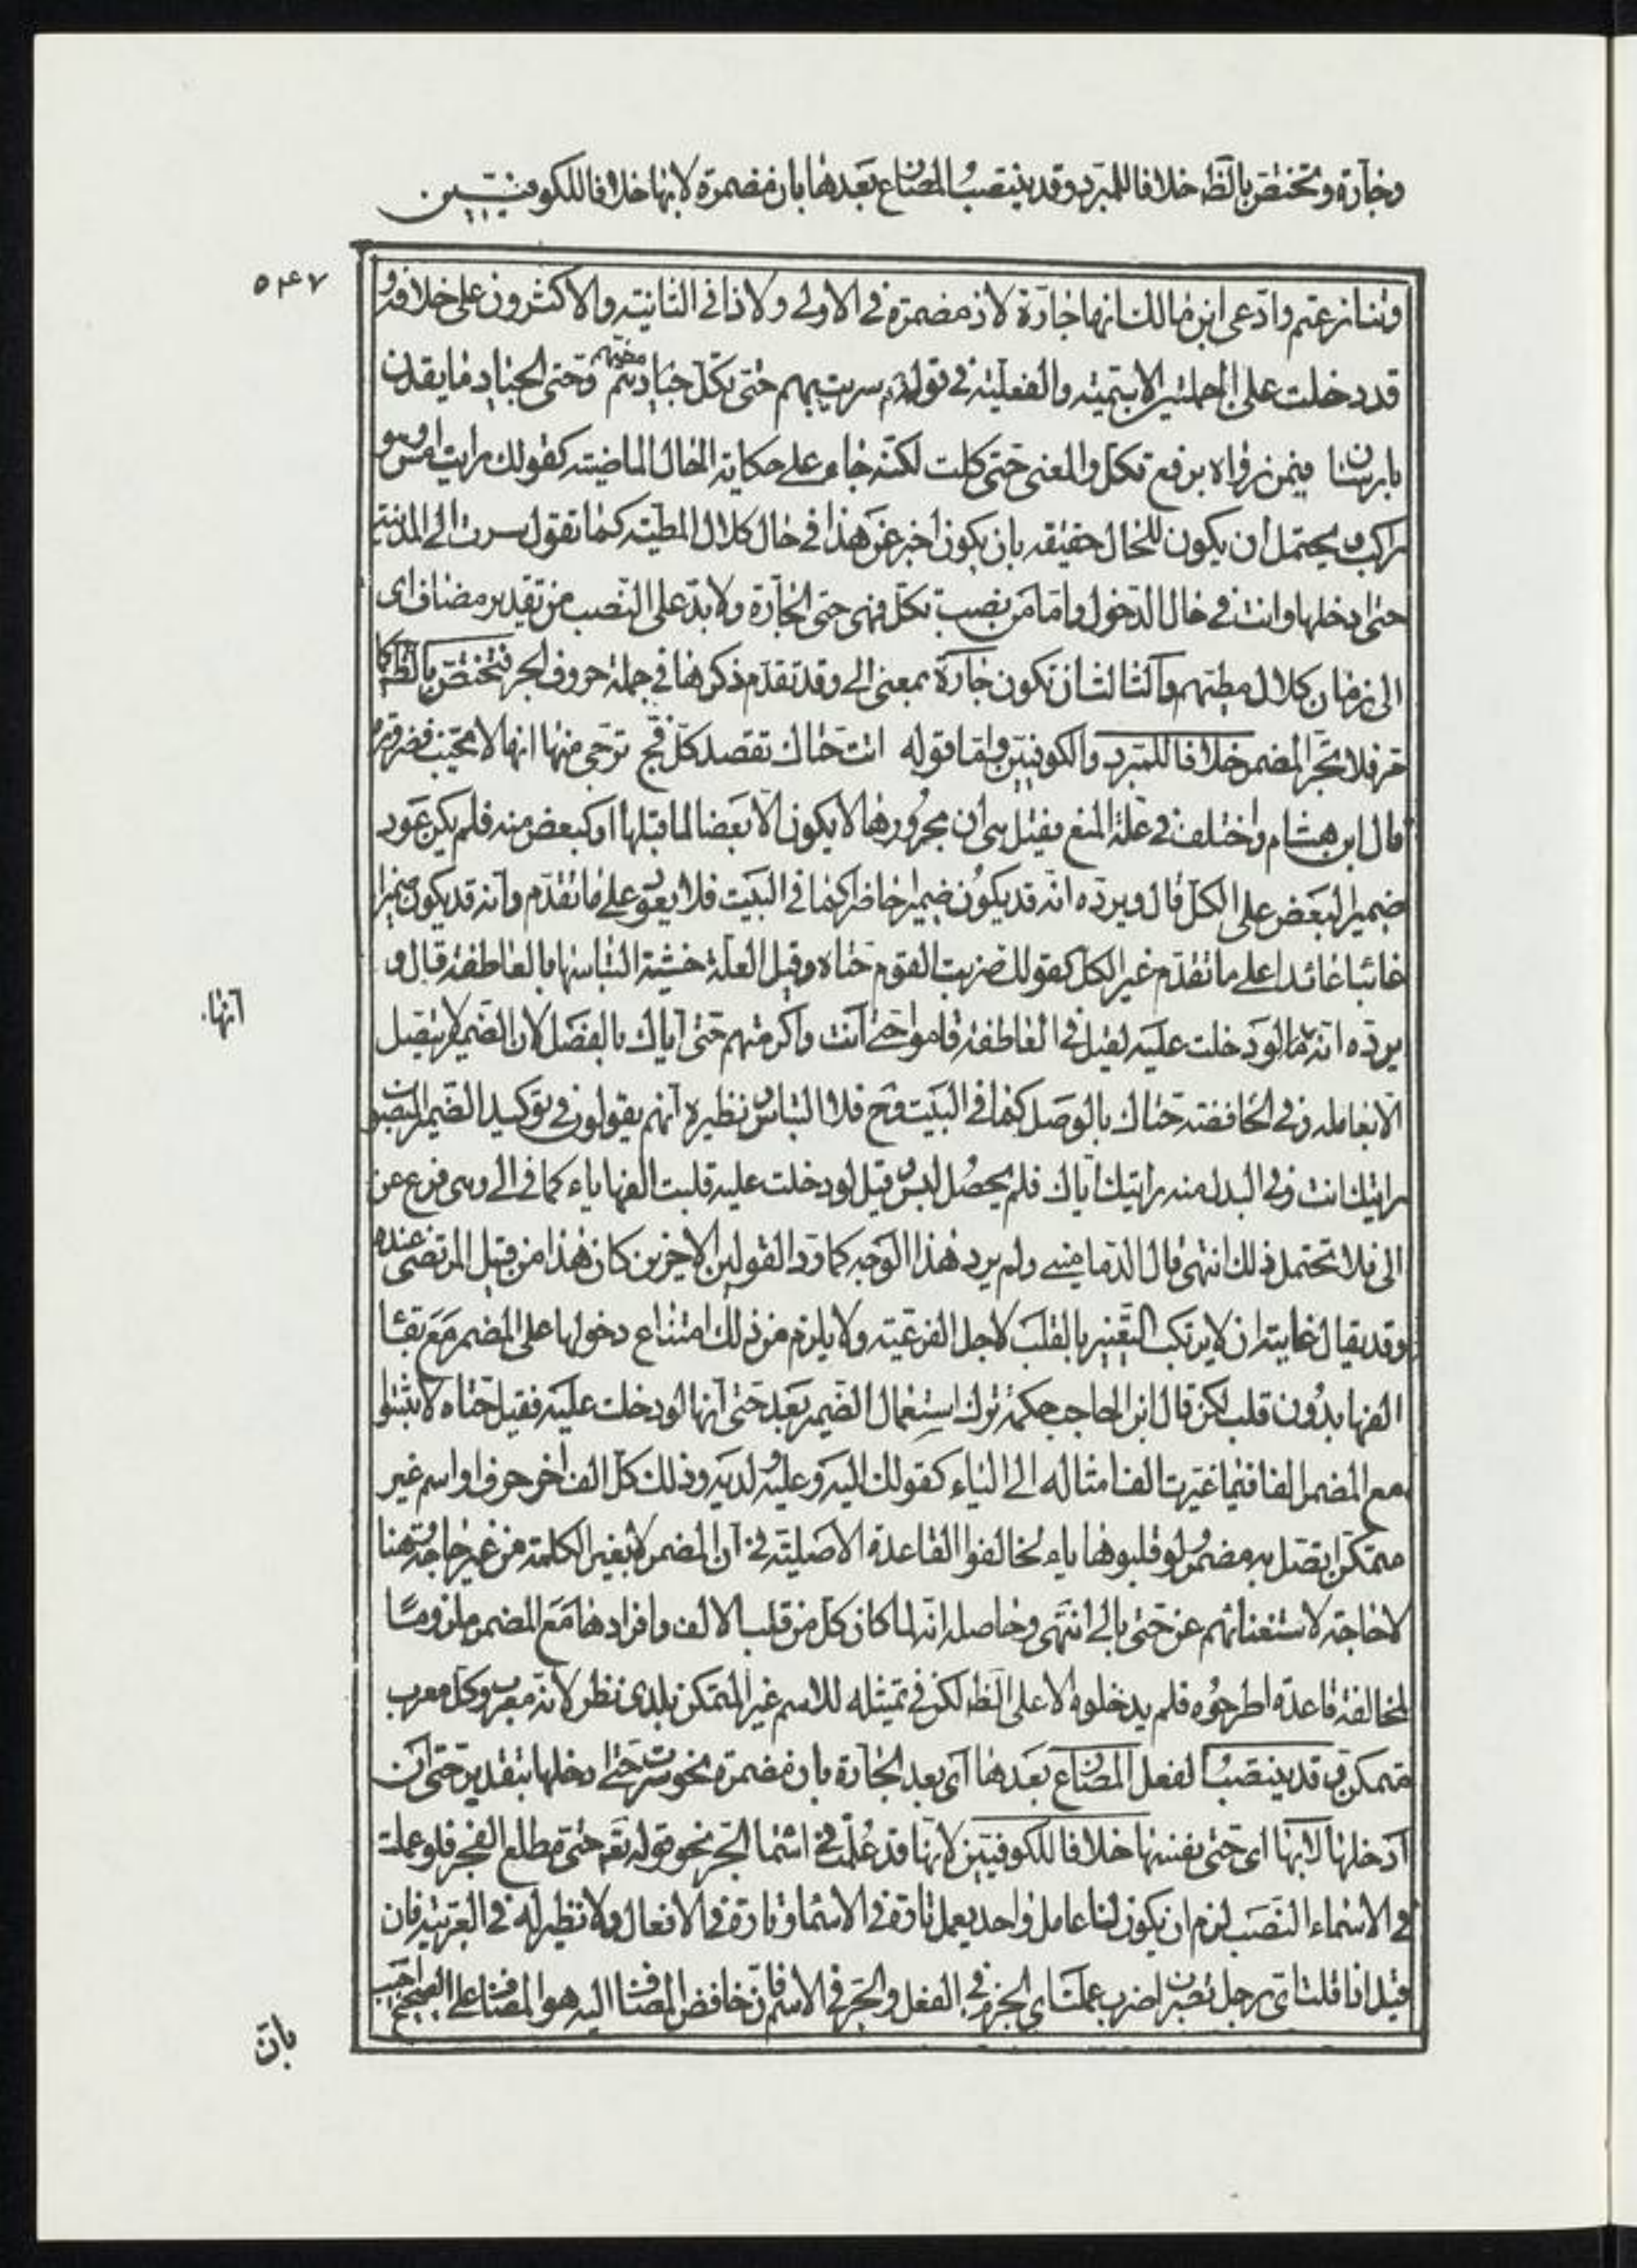 وجارة وتختص بالظ خلافا للمبرد وقد ينتصب المضارع بعدها بان مضمرة لا بها خلافا للكوفيين
٥٤٧
وتنازعتم وادعى ابن مالك انها جارة لان مضمرة في الاولى ولا ذا في الثانية والاكثرون على خلافه و
قد دخلت على الجملتين الاسمية والفعلية في قوله سريت بهم حتى تكل مطيهم وحتى الجياد ما يقدن
بارسان فيمن رواه برفع تكل والمعنى حتى كلت لكنه جاء على حكاية الحال الماضية كقولك رايت امس و
راكب ويحتمل ان يكون للحال حقيقه بان يكون اخبر عن هذا في حال كلال المطية كما تقول سرت الى المدينة
حتى ادخلها وانت في حال الدخول واما من نصب تكل فهي حتى الجارة ولا بد على النصب من تقدير مضاف اى
الى زمان كلال مطيهم والثالث ان تكون جارة بمعنى الى وقد تقدم ذكرها في جملة حروف الجر فتختص بالظ كما
مر فلا تجر المضمر خلافا للمبرد والكوفيين واما قوله اتت حتاك تقصد كل فج ترجى منها انها لا تخيب فضرورة
قال ابن هشام واختلف في علة المنع فقيل هي ان مجرورها لا يكون الا بعضا لما قبلها او كبعض منه فلم يكن عود
ضمير البعض على الكل قال ويرده انه قد يكون ضميرا حاضرا كما في البيت فلا يعود على ما تقدم وانه قد يكون ضميرا
غائبا عائدا على ما تقدم غير الكل كقولك ضربت القوم حتاه وقيل العلة خشية التباسها بالعاطفة قال و
يرده انه لو دخلت عليه لقيل في العاطفة قاموا حتى انت واكرمتهم حتى اياك بالفصل لان الضمير لا يتصل
انها
الا بعامله وفى الخافضة حتاك بالوصل كما في البيت وح فلا التباس ونظيره انهم يقولون في توكيد الضمير المنصوب
رايتك انت وفى البدل منه رايتك اياك فلم يحصل لبس وقيل لو دخلت عليه قلبت الفها ياء كما في الى وهى فرع عن
الى فلا تحتمل ذلك انتهى قال الدمامينى ولم يرد هذا الوجه كما رد القولين الاخرين كان هذا من قبل المرتضى عنده
وقد يقال غايته ان لا يرتكب التغيير بالقلب لاجل الفرعية ولا يلزم من ذلك امتناع دخولها على المضمر مع بقاء
الفها بدون قلب لكن قال ابن الحاجب حكمة ترك استعمال الضمير بعد حتى انها لو دخلت عليه فقيل حتاه لاثبتوا
مع المضمر الفا فيما غيرت الفا مثاله الى الياء كقولك اليه وعليه ولديه وذلك كل الف اخر حرف او اسم غير
متمكن اتصل به مضمر ولو قلبوها ياء لخالفوا القاعدة الاصلية في ان المضمر لا يغير الكلمة من غير حاجة وهنا
لا حاجة لاستغنائهم عن حتى بالى انتهى وحاصله انه لما كان كل من قلب الالف واقرارها مع المضمر ملزوما
لمخالفة قاعدة اطرحوه فلم يدخلوه الا على الظ لكن في تمثيله للاسم غير المتمكن بلدى نظر لانه معرب وكل معرب
متمكن وقد ينتصب الفعل المضارع بعدها اى بعد الجارة بان مضمرة نحو سرت حتى ادخلها بتقدير حتى ان
ادخلها لا بها اى حتى بنفسها خلافا للكوفيين لانها قد عملت في اسما الجر نحو قوله تعَ حتى مطلع الفجر فلو عملت
في الاسماء النصب لزم ان يكون لنا عامل واحد يعمل تارة في الاسما وتارة في الافعال ولا نظير له في العربية فان
قيل اذا قلت اى رجل تضرب اضرب عملت اى الجزم في الفعل والجر في الاسم فان خافض المضاف اليه هو المضاف على الصحيح اجيب
بان